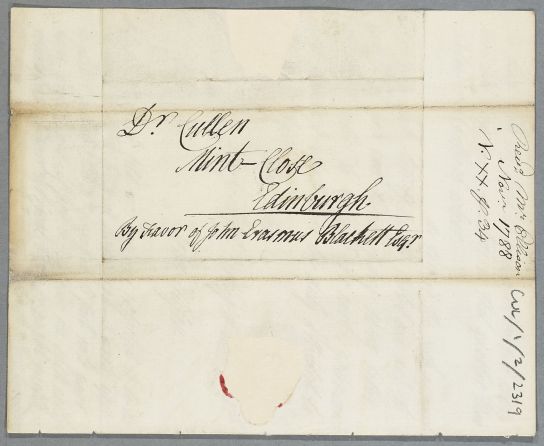 Dr. Cullen
Mint-Close
Edinburgh.
By Favor of John Erasmus Blackett Esqr.
Mr. Ellison
Novr. 1788
N. XX. p. 34
CUL/1/2/2319